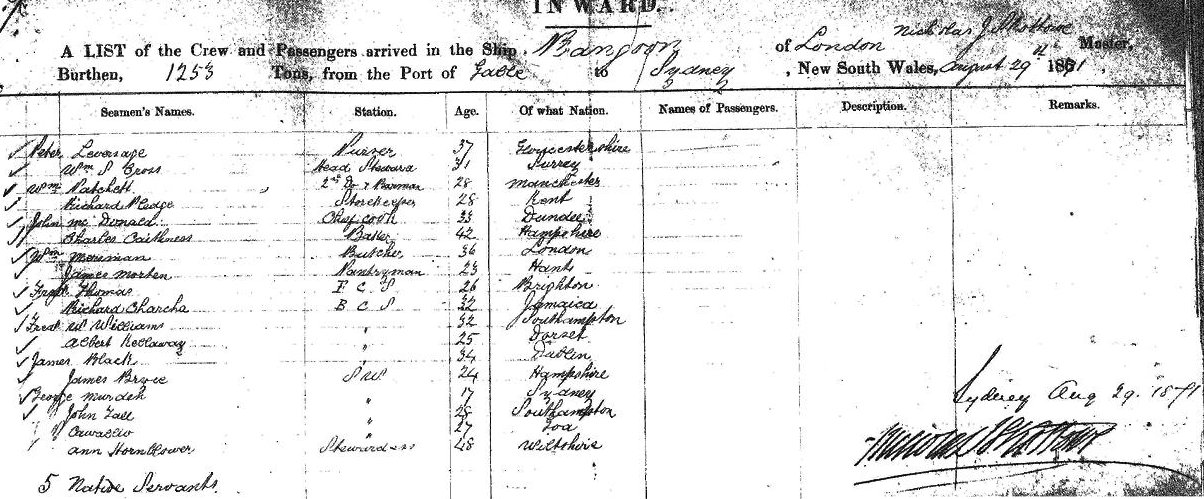 INWARD.
A LIST of the Crew and Passengers arrived in the Ship Rangoon of London Nicholas J Master,
Burthen, 1253 Tons, from the Port of Galle to Sydney, New South Wales, August 29th 1871,
Seamen's Names. Station. Age. Of what Nation. Names of Passengers. Description. Remarks.
Peter Leversage 37 Gloucestershire
Wm S Cross Head Steward 31 Surrey
Wm Patchett 2nd Do & Barman 28 Manchester
Richard Pledge Storekeeper 28 Kent
John Mc Donald Chief cook 33 Dundee
Charles Caithness Baker 42 Hampshire
Wm Merriman Butcher 36 London
James Morten Pantryman 23 Hants
Frank Thomas F C S 26 Brighton
Richard Charcha B C S 32 Jamaica
Fred W Williams " 32 Southampton
Albert Kellaway " 25 Dorset
James Black " 34 Dublin
James Bryce S W 24 Hampshire
George Murdoh " 17 Sydney
John Tall " 28 Southampton
Cawallio " 27 Goa
Ann Hornblower Stewardess 48 Wiltshire
5 Native Servants.
Sydney Aug 29. 1871